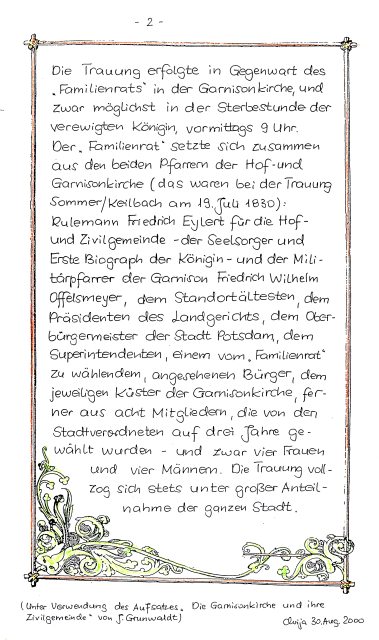 - 2 -
Die Trauung erfolgte in Gegenwart des
„Familienrats" in der Garnisonkirche, und
zwar möglichst in der Sterbestunde der
verewigten Königin, vormittags 9 Uhr.
Der „Familienrat" setzte sich zusammen
aus den beiden Pfarrern der Hof- und
Garnisonkirche (das waren bei der Trauung
Sommer/Keilbach am 19. Juli 1830):
Rulemann Friedrich Eylert für die Hof-
und Zivilgemeinde - der Seelsorger und
Erste Biograph der Königin - und der Mili-
tärpfarrer der Garnison Friedrich Wilhelm
Offelsmeyer, dem Standortältesten, dem
Präsidenten des Landgerichts, dem Ober-
bürgermeister der Stadt Potsdam, dem
Superintendenten, einem vom „Familienrat"
zu wählendem, angesehenen Bürger, dem
jeweiligen Küster der Garnisonkirche, fer-
ner aus acht Mitgliedern, die von den
Stadtverordneten auf drei Jahre ge-
wählt wurden - und zwar vier Frauen
und vier Männern. Die Trauung voll-
zog sich stets unter großer Anteil-
nahme der ganzen Stadt.
(Unter Verwendung des Aufsatzes „Die Garnisonkirche und ihre
Zivilgemeinde" von J. Grunwaldt)
30. Aug. 2000